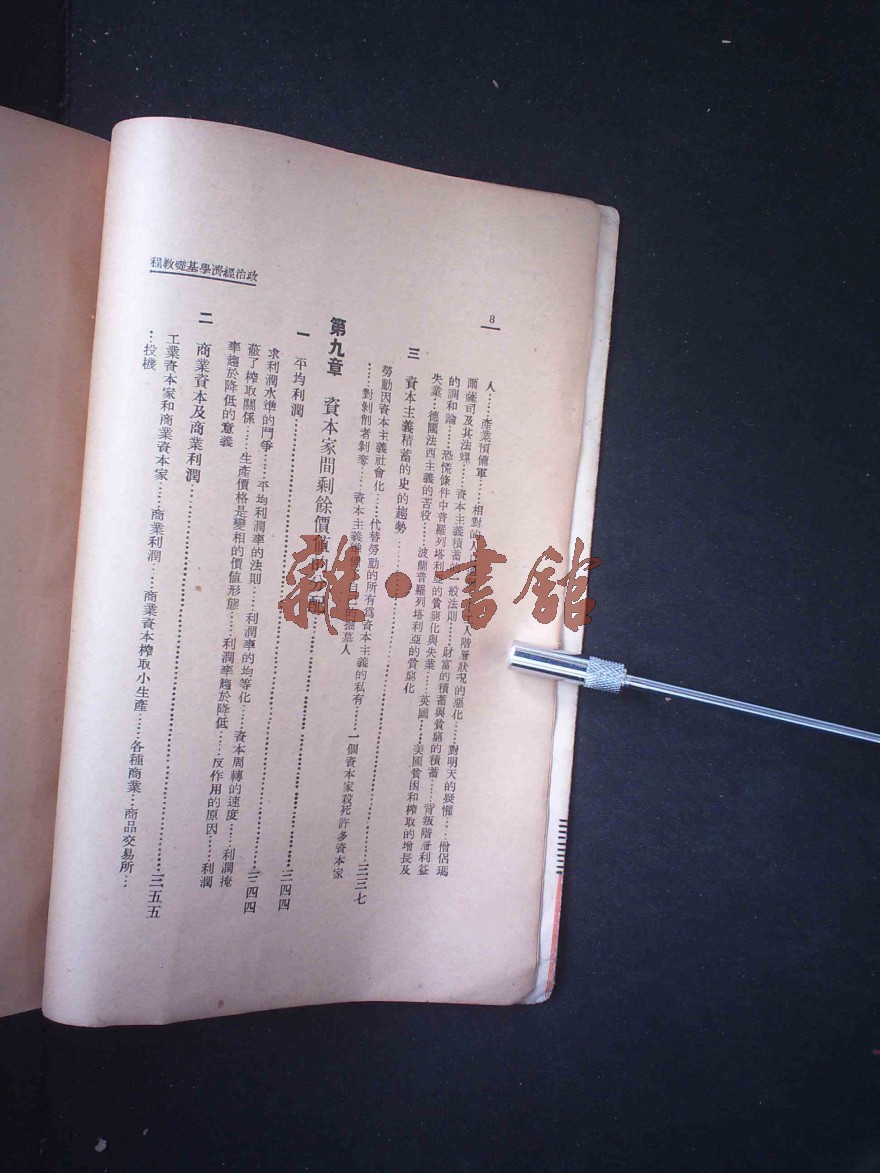 政治經濟學基礎教程
8
人……產業預備軍……相對的人……人階層狀況的惡化……對明天的疑懼……僧侶瑪
爾薩司及其法螺……資本主義積蓄的一般法則……財富的積蓄與貧窮的積蓄……背叛階層利益
的調和論……恐慌條件中普羅列塔利亞的貧窮化與失業……英國……美國貧困和榨取的增長及
失業……德國法西主義的苦役……波蘭普羅列塔利亞的貧窮化
三 資本主義積蓄的史的趨勢……三三七
勞動因資本主義社會化……代替勞動的所有爲資本主義的私有……一個資本家殺死許多資本家
……對剝削者剝奪……資本主義……自己的掘墓人
第九章 資本家間剩餘價值的分配……三四四
一 平均利潤……三四四
求利潤水準的鬥爭……平均利潤率的法則……利潤率的均等化……資本周轉的速度……利潤掩
蔽了榨取關係……生產價格是變相的價值形態……利潤率趨於降低……反作用的原因……利潤
率趨於降低的意義
二 商業資本及商業利潤……三五五
工業資本家和商業資本家……商業利潤……商業資本榨取小生產……各種商業……商品交易所…
…投機
雜·書館